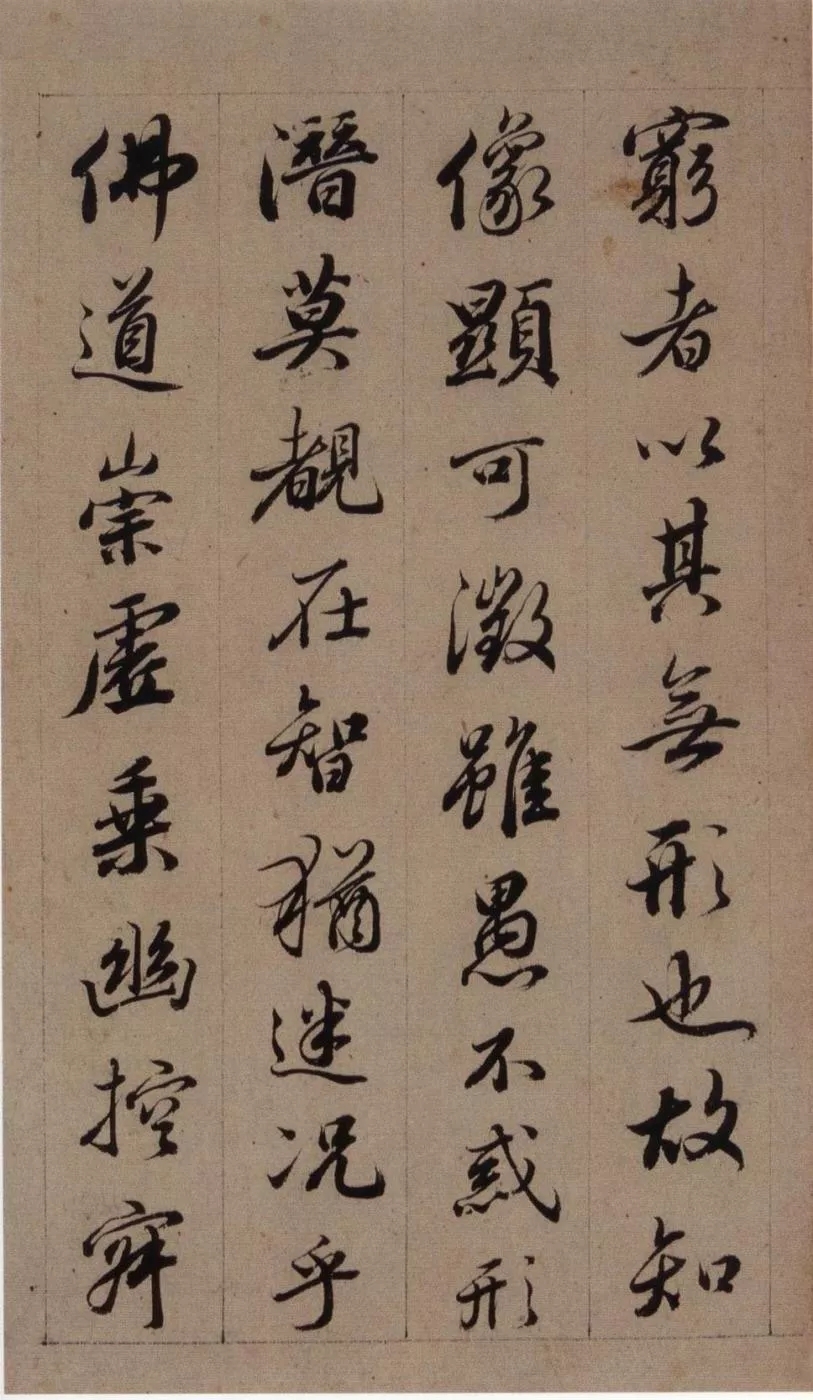 窮者以其無形也故知
像顯可徵雖愚不惑形
潛莫覩在智猶迷況乎
佛道崇虛乘幽控寂